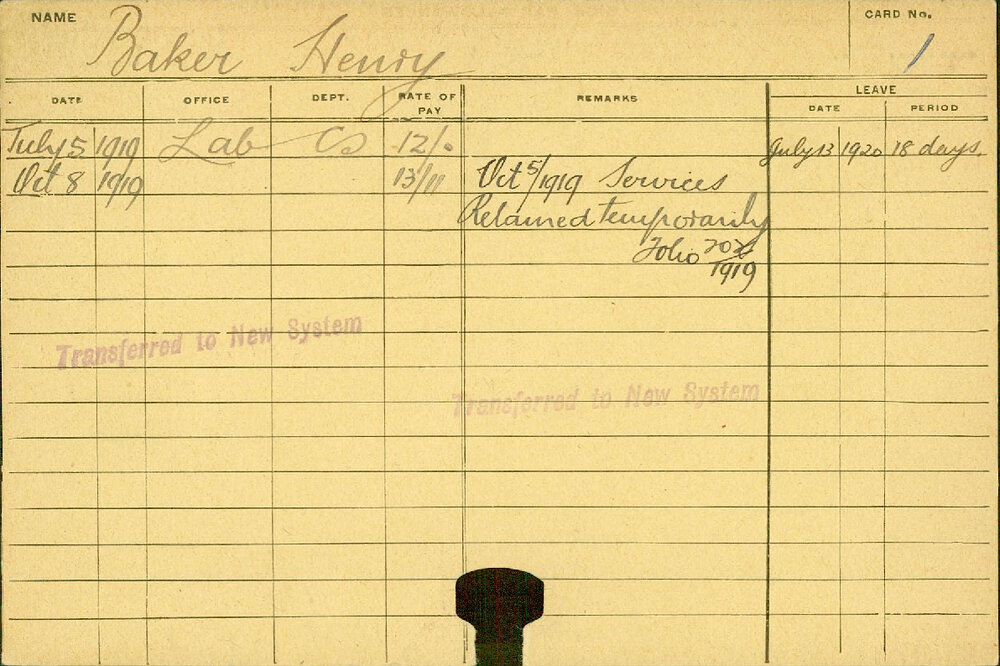 NAME Baker Henry CARD No. 1
DATE OFFICE DEPT. RATE OF PAY REMARKS LEAVE
DATE PERIOD
July 5 1919 Lab 12/. July 13 1920 18 days.
Oct 8 1919 13/11 Oct 5/1919 Services
Retained temporarily
Folio
1919
Transferred to New System
Transferred to New System